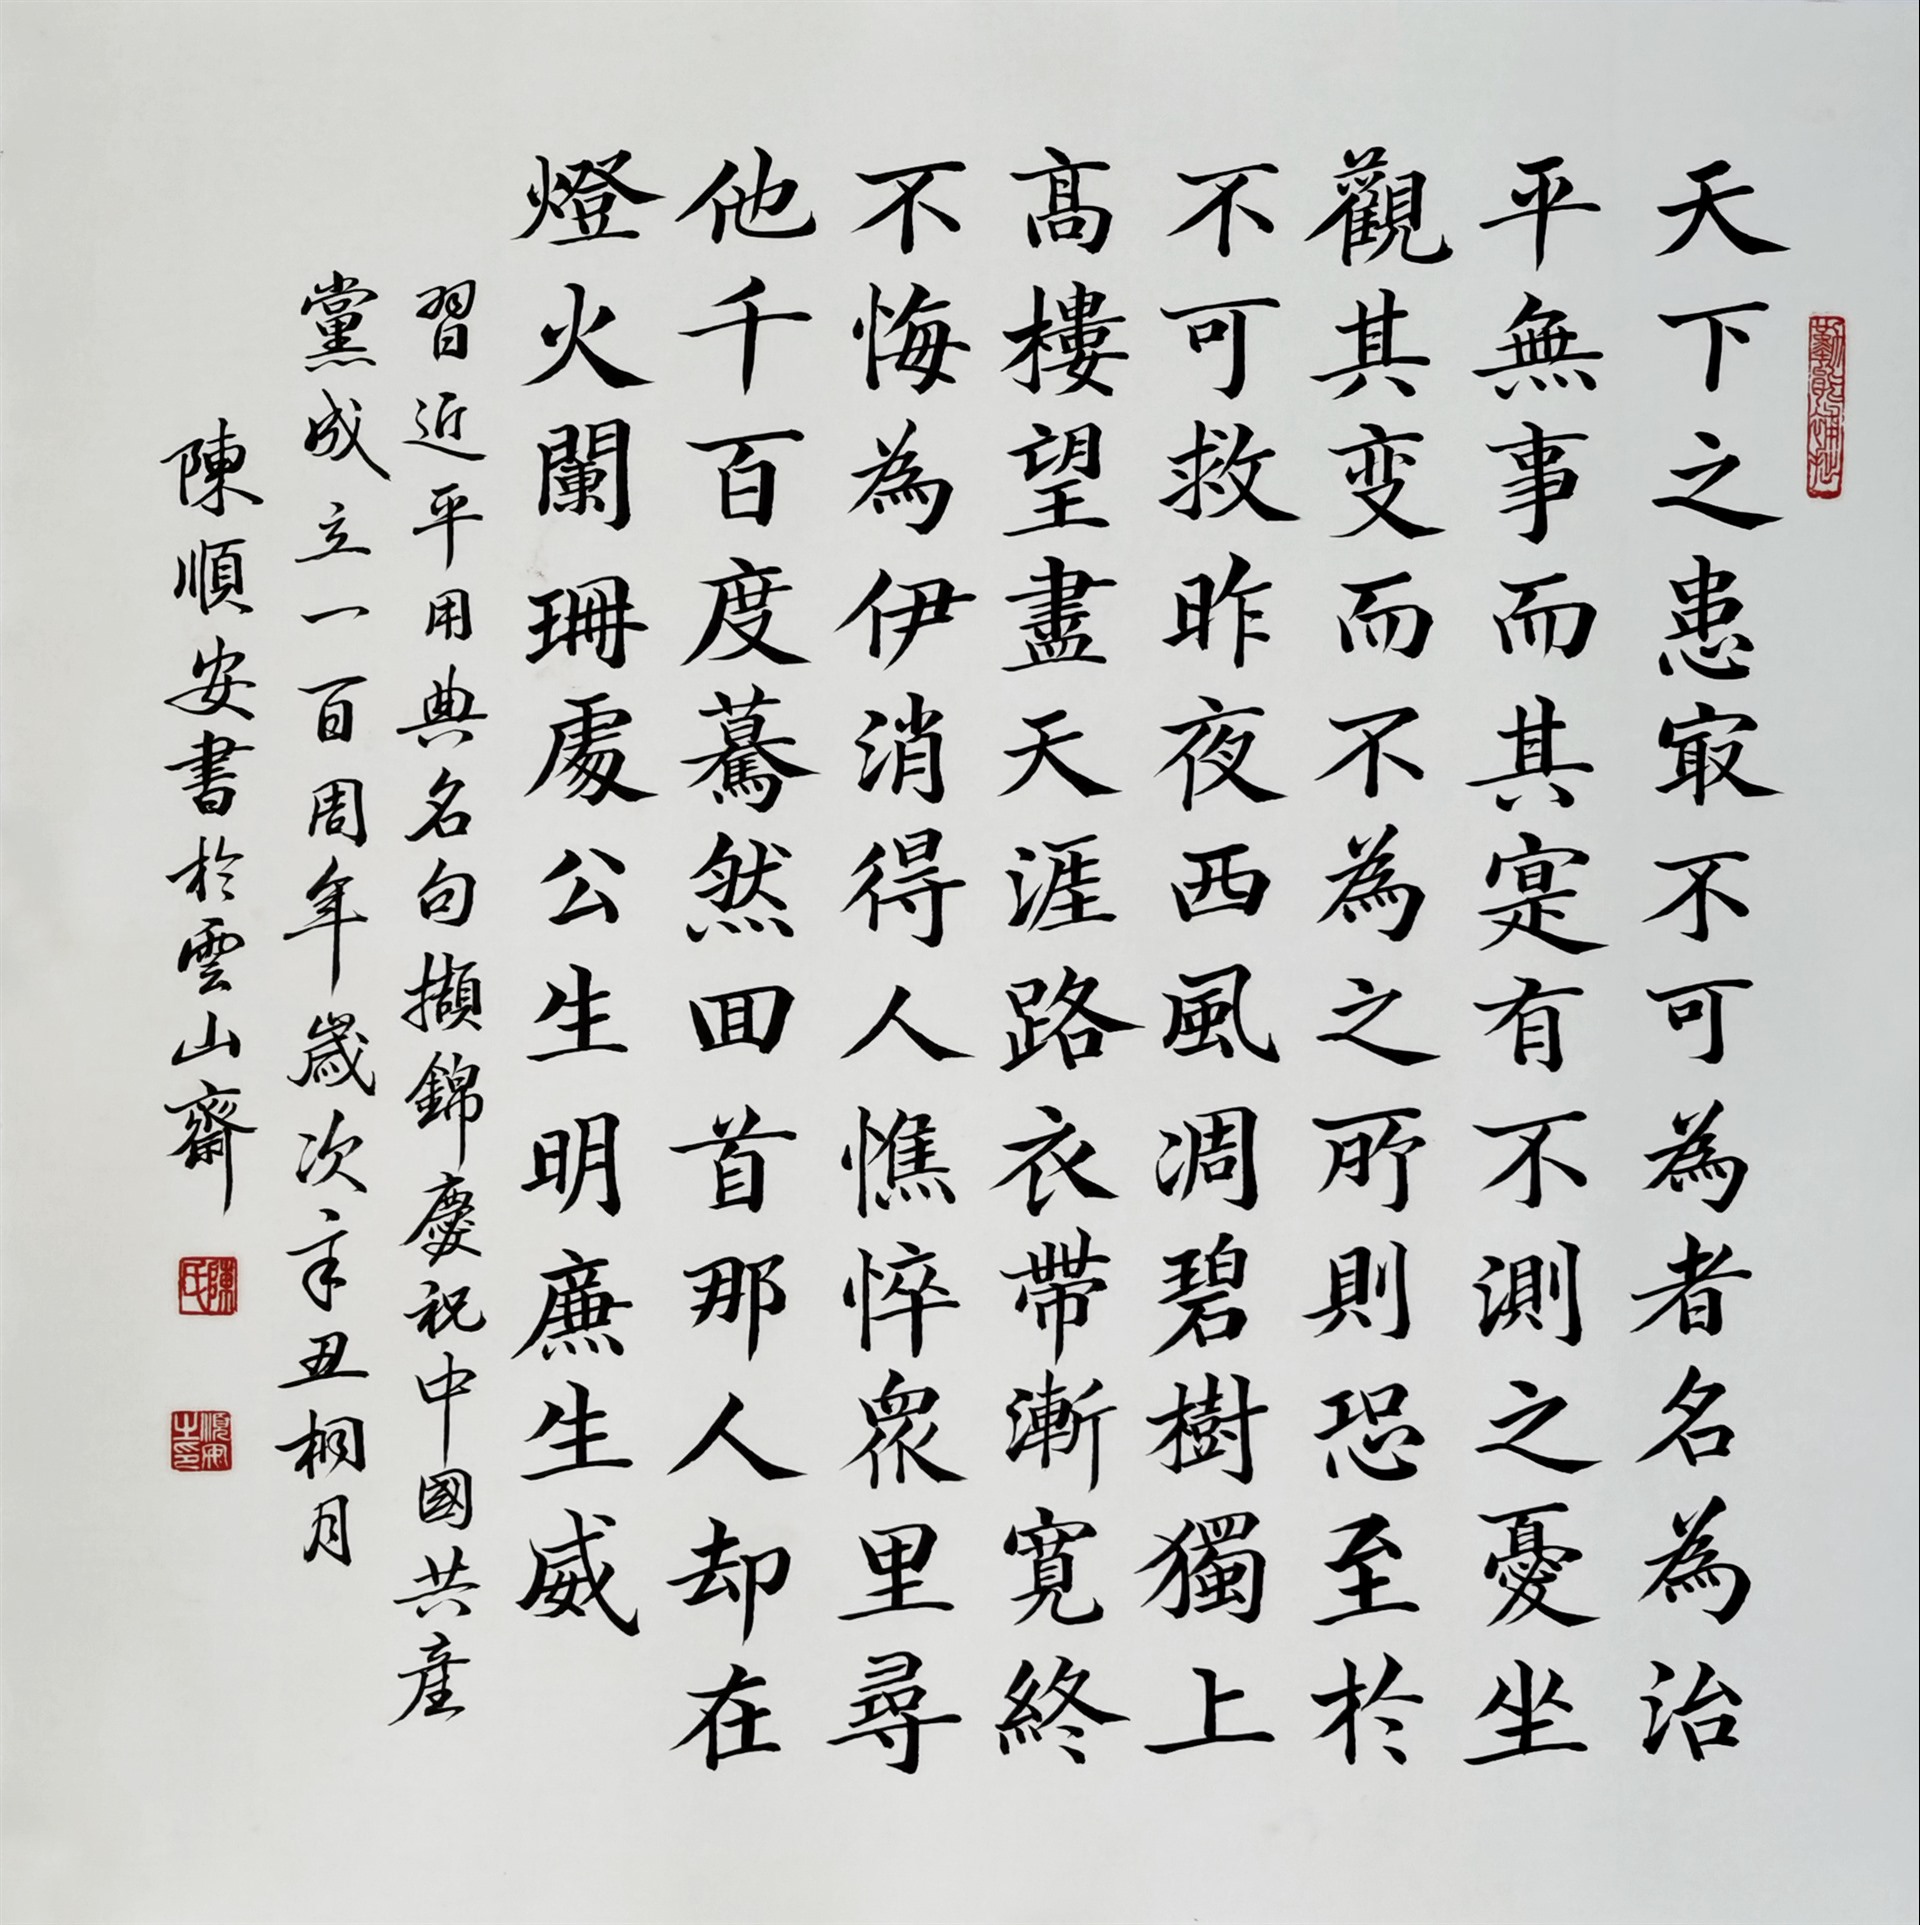 天下之患冣不可為者名為治
平無事而其寔有不測之憂坐
觀其变而不為之所則恐至於
不可救昨夜西風凋碧樹獨上
高樓望盡天涯路衣帶漸寬終
不悔為伊消得人憔悴眾里尋
他千百度驀然回首那人却在
燈火闌珊處公生明廉生威
習近平用典名句擷錦慶祝中國共產
黨成立一百周年歲次辛丑桐月
陳順安書於雲山齋
陳氏
順安之印